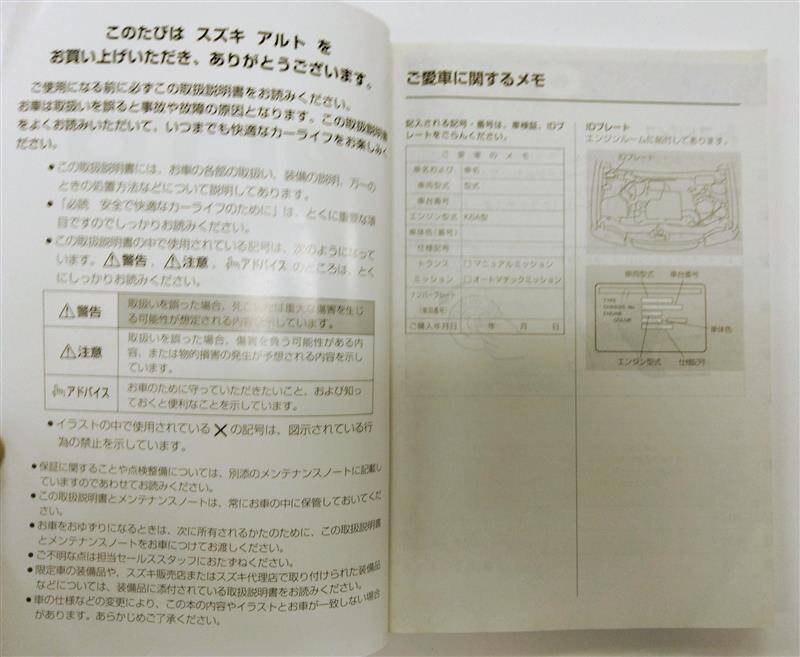 このたびは スズキ アルト を
お買い上げいただき、ありがとうございます。
ご使用になる前に必ずこの取扱説明書をお読みください。
お車は取扱いを誤ると事故や故障の原因となります。この取扱説明書
をよくお読みいただいて、いつまでも快適なカーライフをお楽しみく
ださい。
●この取扱説明書には、お車の各部の取扱い、装備の説明、万一の
ときの処置方法などについて説明してあります。
●「必読 安全で快適なカーライフのために」は、とくに重要な項
目ですのでしっかりお読みください。
●この取扱説明書の中で使用されている記号は、次のようになって
います。⚠警告、⚠注意、アドバイス のところは、とく
にしっかりお読みください。
⚠警告
取扱いを誤った場合、死亡または重大な傷害を生じ
る可能性が想定される内容を示しています。
⚠注意
取扱いを誤った場合、傷害を負う可能性がある内
容、または物的損害の発生が予想される内容を示し
ています。
アドバイス
お車のために守っていただきたいこと、および知っ
ておくと便利なことを示しています。
●イラストの中で使用されている✕の記号は、図示されている行
為の禁止を示しています。
●保証に関することや点検整備については、別添のメンテナンスノートに記載し
ていますのであわせてお読みください。
●この取扱説明書とメンテナンスノートは、常にお車の中に保管しておいてくだ
さい。
●お車をおゆずりになるときは、次に所有されるかたのために、この取扱説明書
とメンテナンスノートをお車につけてお渡しください。
●ご不明な点は担当セールススタッフにおたずねください。
●限定車の装備品や、スズキ販売店またはスズキ代理店で取り付けられた装備品
などについては、装備品に添付されている取扱説明書をお読みください。
●車の仕様などの変更により、この本の内容やイラストとお車が一致しない場合
があります。あらかじめご了承ください。
ご愛車に関するメモ
記入される記号・番号は、車検証、IDプ
レートをごらんください。
ご愛車のメモ
車名および 車名
車両型式 型式
車台番号
エンジン型式 K6A型
車体色(番号)
仕様記号
トランス □マニュアルミッション
ミッション □オートマチックミッション
ナンバープレート
(車両番号)
ご購入年月日 年 月 日
IDプレート
エンジンルームに貼付してあります。
IDプレート
車両型式 車台番号
TYPE
CHASSIS No.
ENGINE
COLOR
車体色
エンジン型式 仕様記号